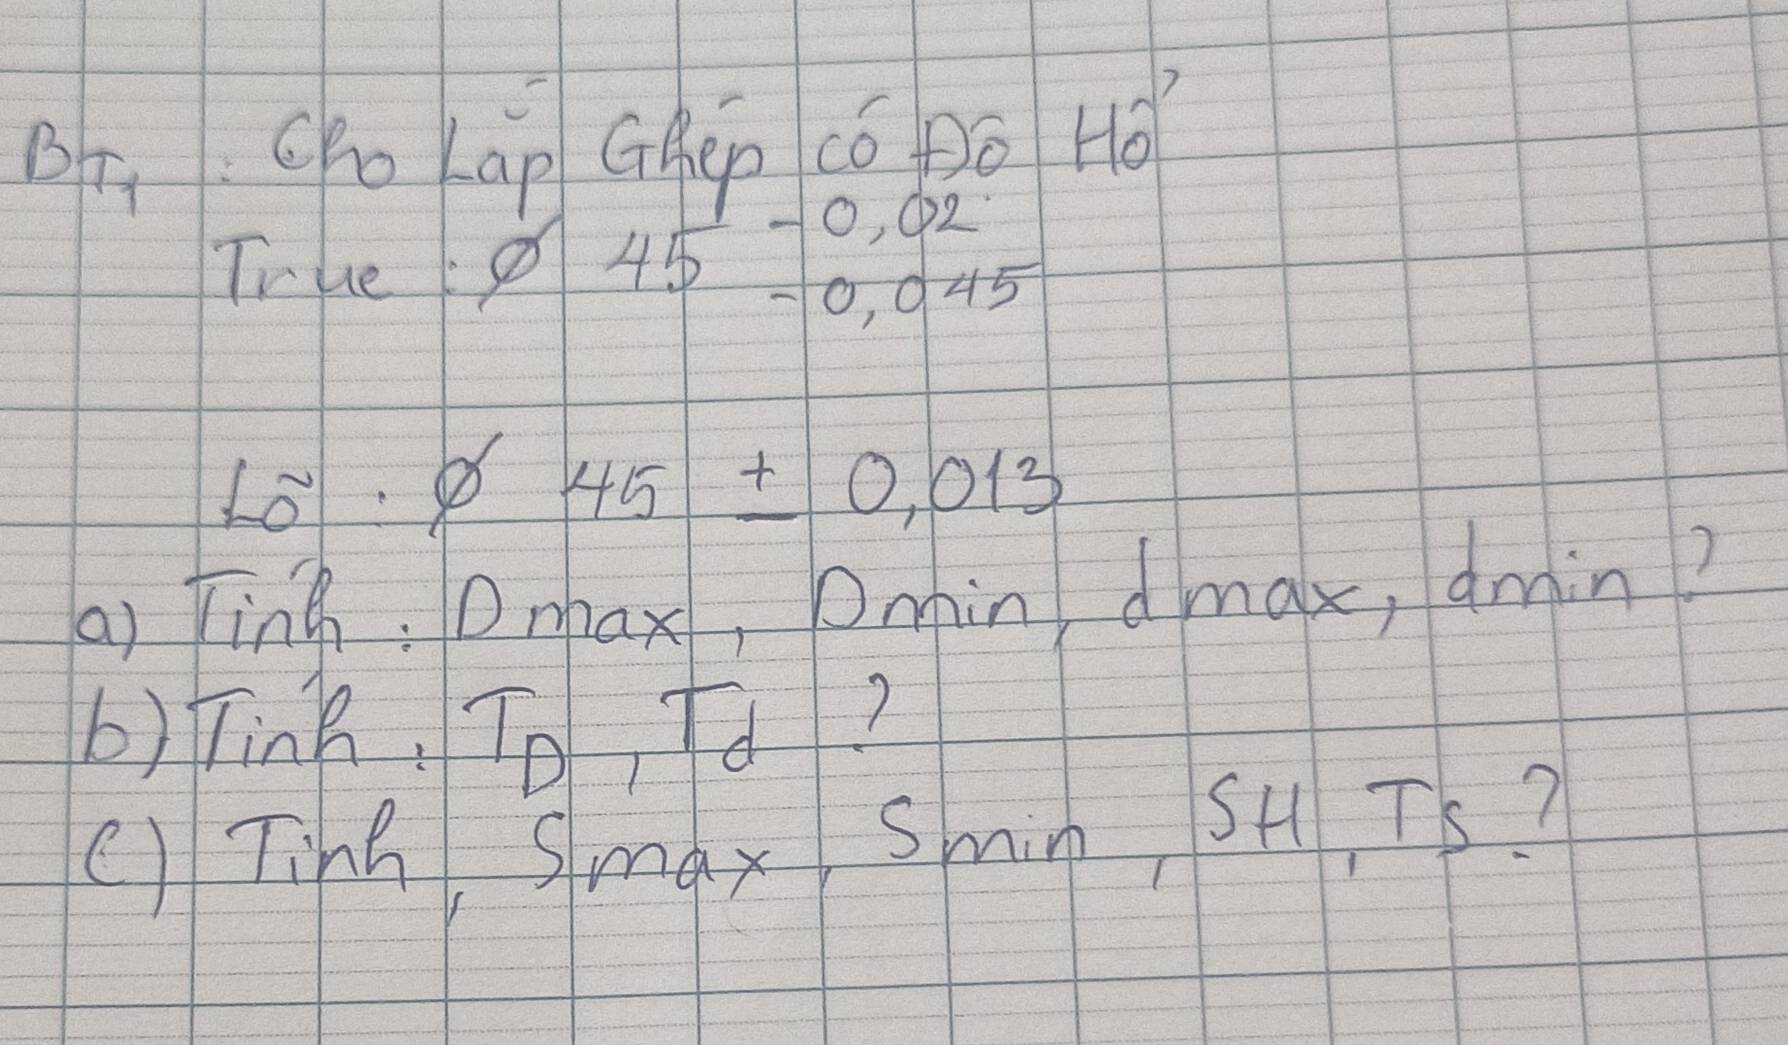 BT1 : Cho Lắp Ghép có Độ Hở
True : Ø 45 -0,02
-0,045
Lỗ : Ø 45 ± 0,013
a) Tính : Dmax, Dmin, dmax, dmin ?
b) Tính : TD, Td ?
c) Tính, Smax, Smin, SH, Ts ?